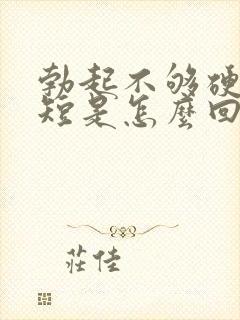 勃起不够硬
短是怎麼回
莊佳